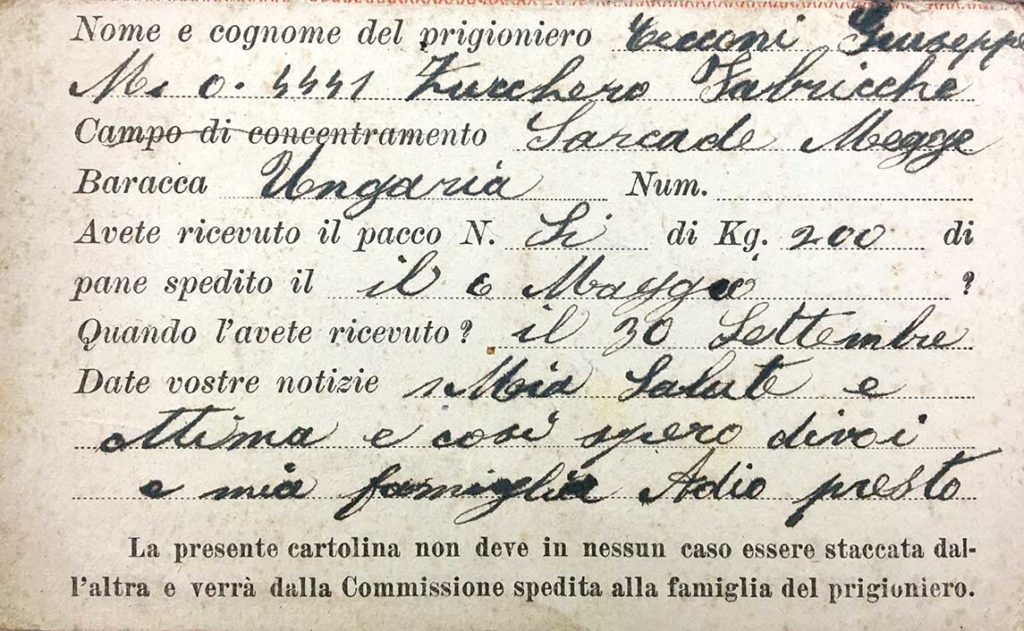 Nome e cognome del prigioniero Cecconi Giuseppe
Ms 0. 4441 Zucchero Fabricche
Campo di concentramento Sarcade Megge
Baracca Ungaria Num.
Avete ricevuto il pacco N. Si di Kg. 200 di
pane spedito il il 6 Maggio ?
Quando l'avete ricevuto? il 30 Settembre
Date vostre notizie Mia Salute e
ottima e così spero di voi
e mia famiglia Adio presto
La presente cartolina non deve in nessun caso essere staccata dal-
l'altra e verrà dalla Commissione spedita alla famiglia del prigioniero.